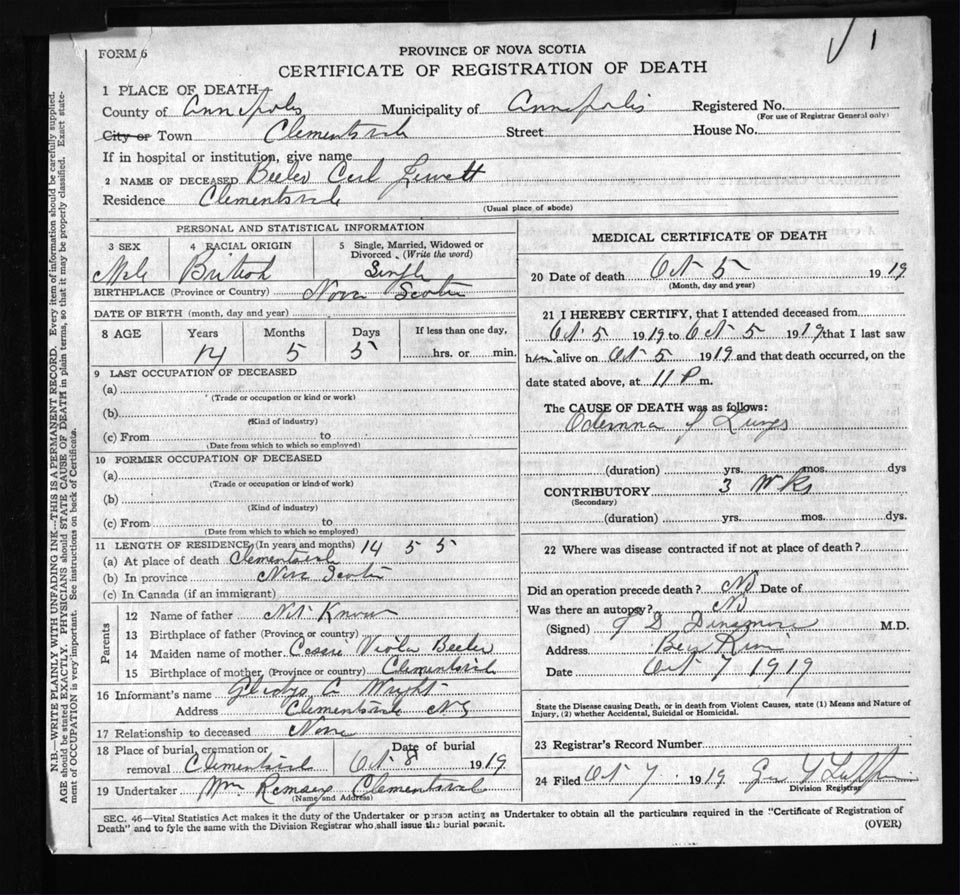 FORM 6
PROVINCE OF NOVA SCOTIA
CERTIFICATE OF REGISTRATION OF DEATH
1 PLACE OF DEATH
County of Annapolis Municipality of Annapolis Registered No.
(For use of Registrar General only)
City or Town Clementsvale Street House No.
If in hospital or institution, give name
2 NAME OF DECEASED Beeler Carl
Residence Clementsvale
(Usual place of abode)
PERSONAL AND STATISTICAL INFORMATION
3 SEX 4 RACIAL ORIGIN 5 Single, Married, Widowed or Divorced. (Write the word)
Male British Single
BIRTHPLACE (Province or Country) Nova Scotia
DATE OF BIRTH (month, day and year)
8 AGE Years Months Days If less than one day,
14 5 5 hrs. or min.
9 LAST OCCUPATION OF DECEASED
(a)
(Trade or occupation or kind or work)
(b)
(Kind of industry)
(c) From to
(Date from which to which so employed)
10 FORMER OCCUPATION OF DECEASED
(a)
(Trade or occupation or kind of work)
(b)
(Kind of industry)
(c) From to
(Date from which to which so employed)
11 LENGTH OF RESIDENCE (In years and months) 14 5 5
(a) At place of death Clementsvale
(b) In province Nova Scotia
(c) In Canada (if an immigrant)
Parents
12 Name of father Not Know
13 Birthplace of father (Province or country)
14 Maiden name of mother Viola Beeler
15 Birthplace of mother (Province or country) Clementsvale
16 Informant's name Gladys A Wright
Address Clementsvale NS
17 Relationship to deceased None
18 Place of burial, cremation or removal Clementsvale Date of burial Oct 8 1919
19 Undertaker Wm Ramsey Clementsvale
(Name and Address)
MEDICAL CERTIFICATE OF DEATH
20 Date of death Oct 5 1919
(Month, day and year)
21 I HEREBY CERTIFY, that I attended deceased from
Oct 5 1919 to Oct 5 1919 that I last saw
him alive on Oct 5 1919 and that death occurred, on the
date stated above, at 11 P m.
The CAUSE OF DEATH was as follows:
Odemna of Lungs
(duration) yrs. mos. dys
CONTRIBUTORY 3 Wks
(Secondary)
(duration) yrs. mos. dys.
22 Where was disease contracted if not at place of death?
Did an operation precede death? No Date of
Was there an autopsy? No
(Signed) Dinsmore M.D.
Address Bear River
Date Oct 7 1919
State the Disease causing Death, or in death from Violent Causes, state (1) Means and Nature of
Injury, (2) whether Accidental, Suicidal or Homicidal.
23 Registrar's Record Number
24 Filed Oct 7 1919
Division Registrar
SEC. 46—Vital Statistics Act makes it the duty of the Undertaker or person acting as Undertaker to obtain all the particulars required in the "Certificate of Registration of
Death" and to fyle the same with the Division Registrar who shall issue the burial permit.
(OVER)
N.B.—WRITE PLAINLY WITH UNFADING INK—THIS IS A PERMANENT RECORD. Every item of information should be carefully supplied.
AGE should be stated EXACTLY. PHYSICIANS should STATE CAUSE OF DEATH in plain terms, so that it may be properly classified. Exact state-
ment of OCCUPATION is very important. See instructions on back of Certificate.